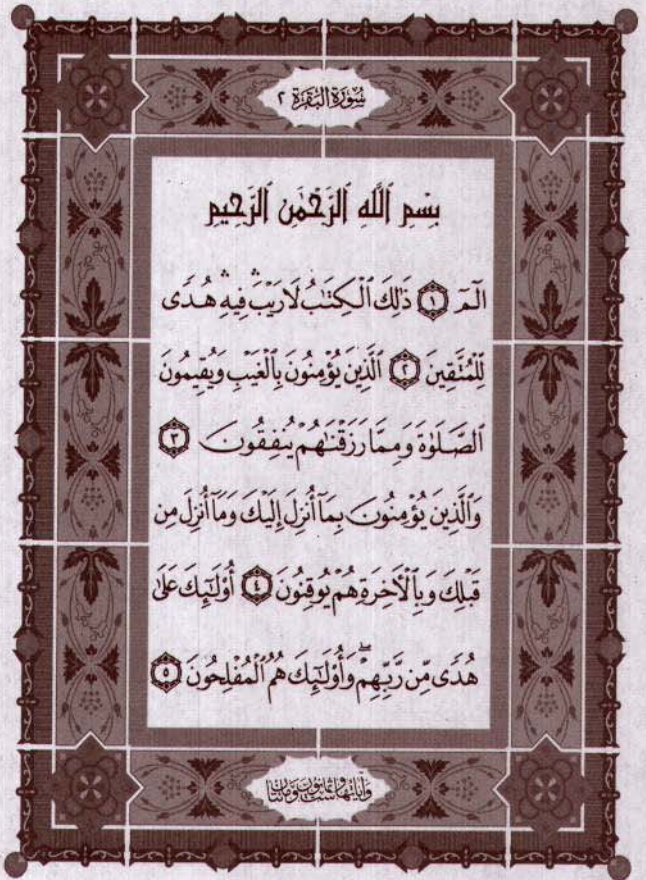 سُورَةُ الْبَقَرَةِ ٢
بِسْمِ ٱللَّهِ ٱلرَّحْمَٰنِ ٱلرَّحِيمِ
الٓمٓ ١ ذَٰلِكَ ٱلْكِتَٰبُ لَا رَيْبَ ۛ فِيهِ ۛ هُدًى
لِّلْمُتَّقِينَ ٢ ٱلَّذِينَ يُؤْمِنُونَ بِٱلْغَيْبِ وَيُقِيمُونَ
ٱلصَّلَوٰةَ وَمِمَّا رَزَقْنَٰهُمْ يُنفِقُونَ ٣
وَٱلَّذِينَ يُؤْمِنُونَ بِمَآ أُنزِلَ إِلَيْكَ وَمَآ أُنزِلَ مِن
قَبْلِكَ وَبِٱلْأَخِرَةِ هُمْ يُوقِنُونَ ٤ أُو۟لَٰٓئِكَ عَلَىٰ
هُدًى مِّن رَّبِّهِمْ ۖ وَأُو۟لَٰٓئِكَ هُمُ ٱلْمُفْلِحُونَ ٥
وَآيَاتُهَا سِتٌّ وَثَمَانُونَ وَمِائَتَانِ